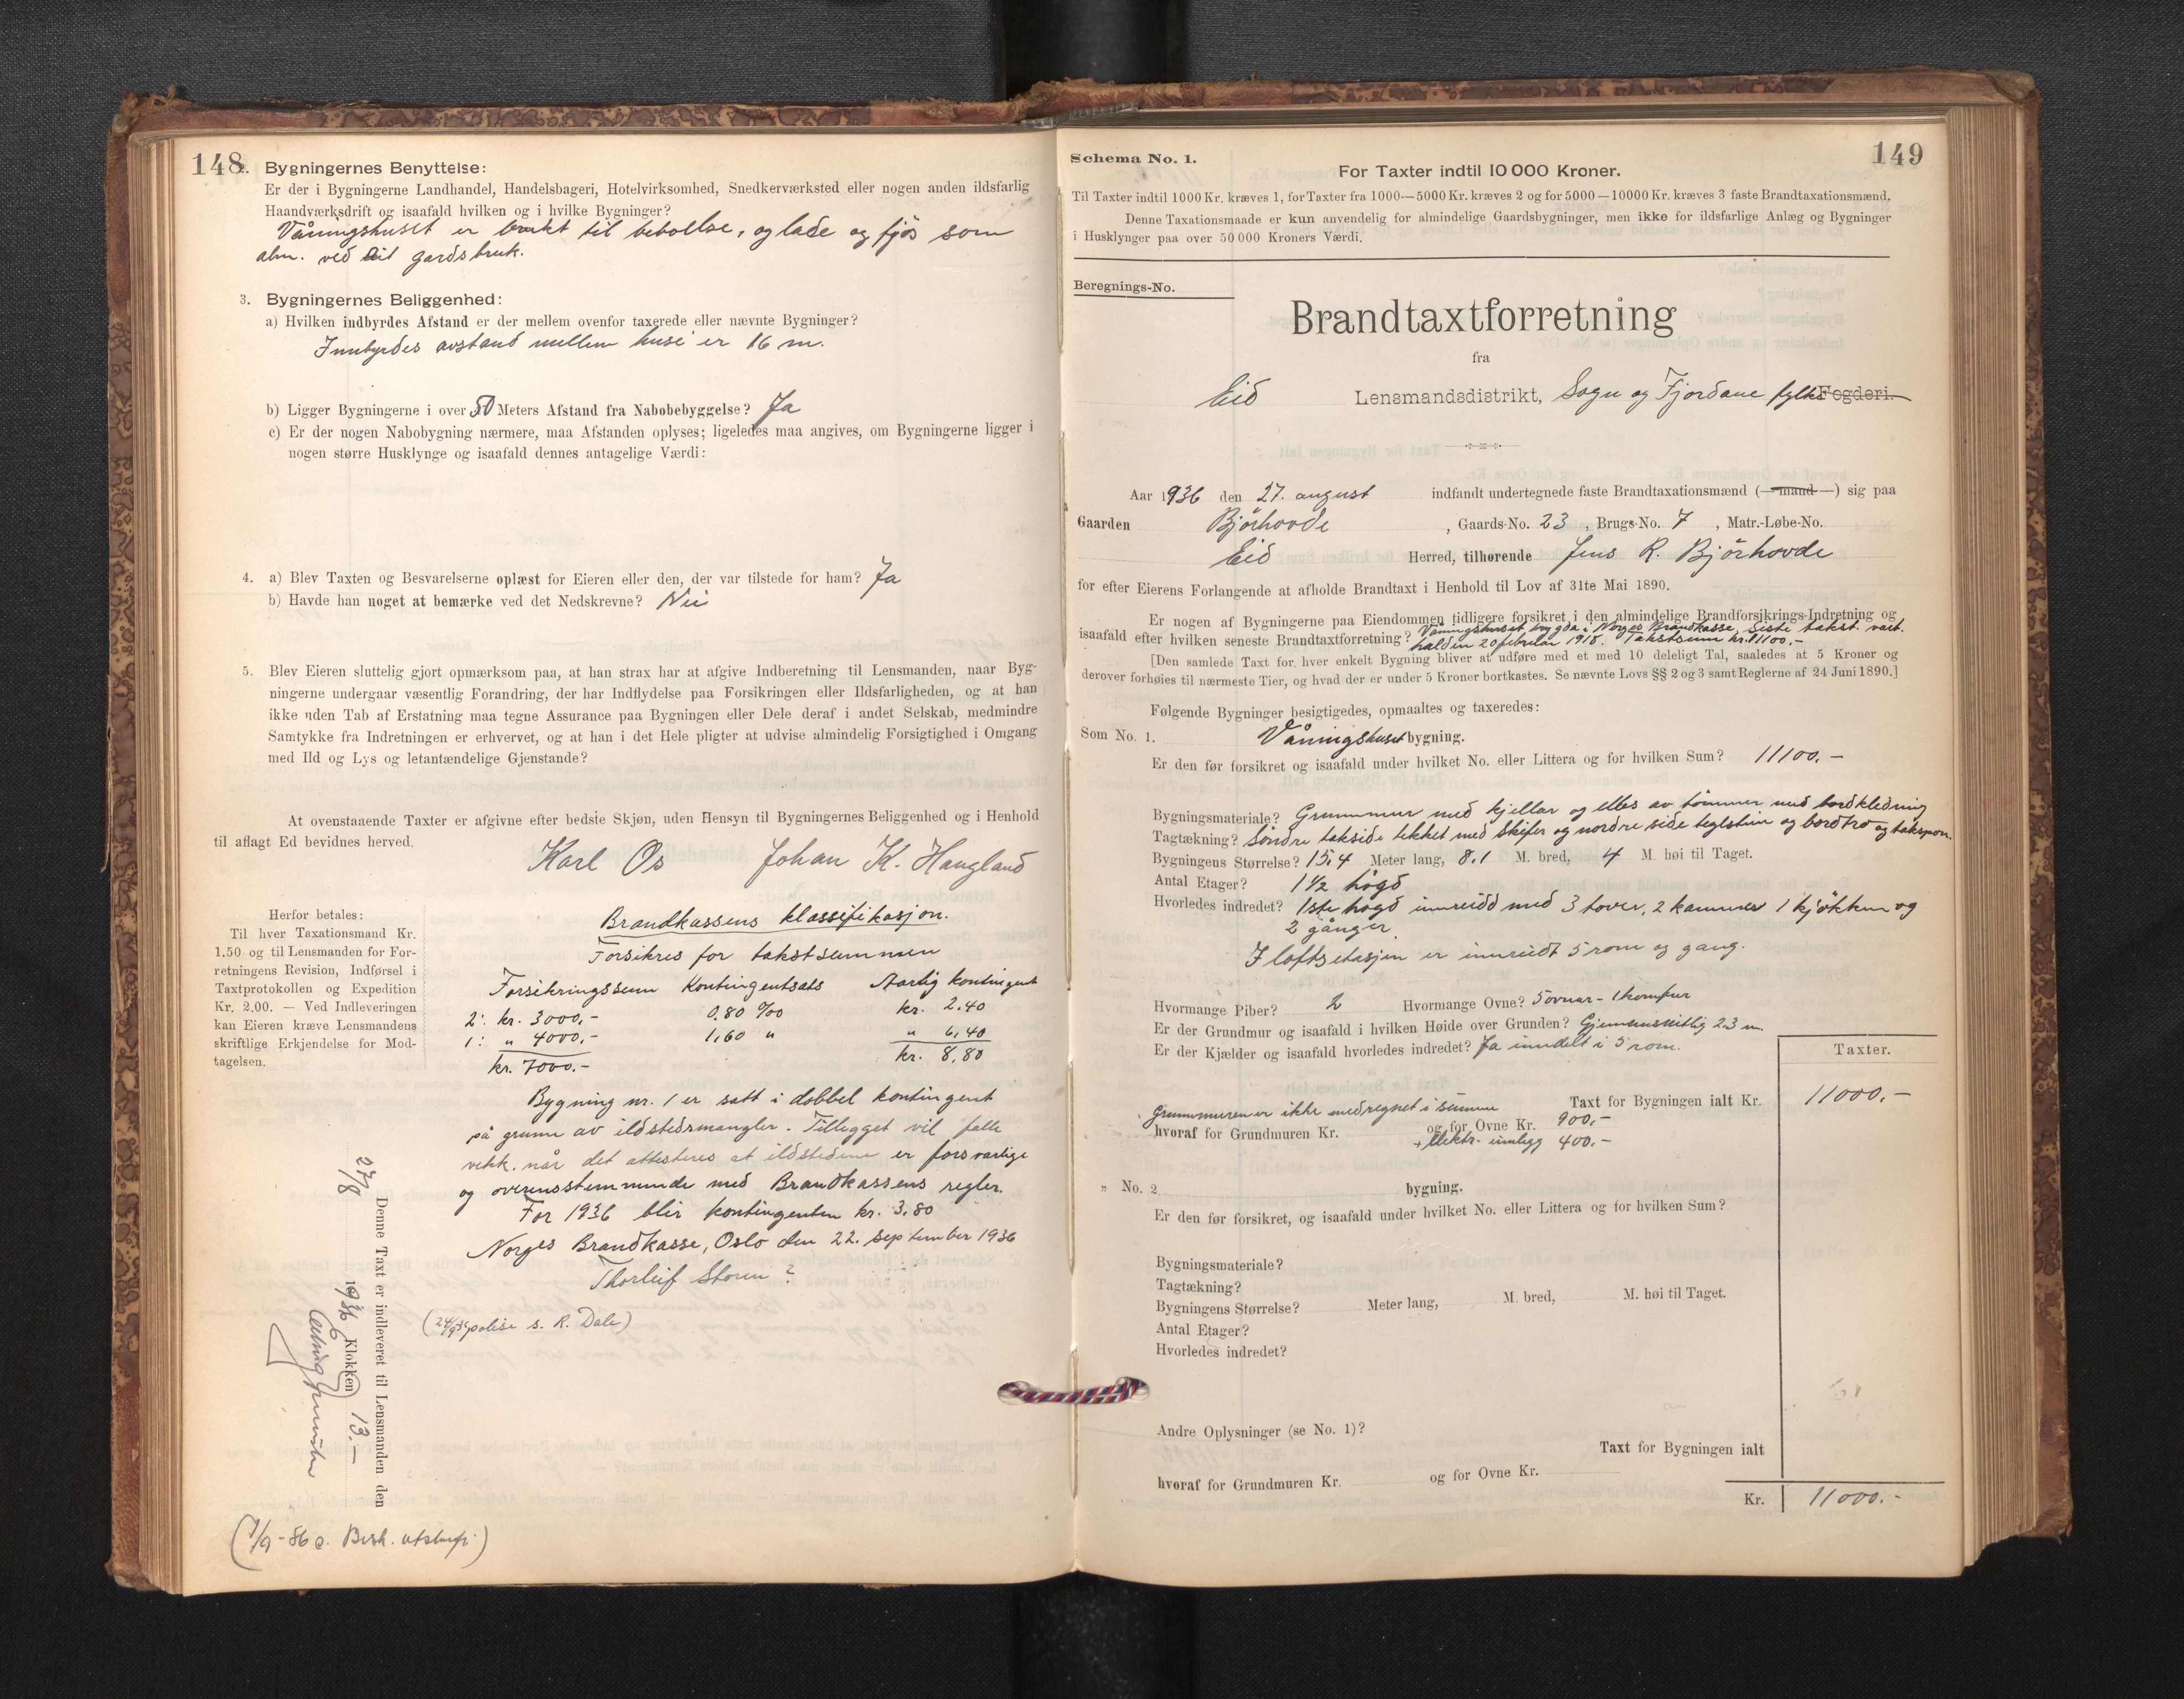 148
2. Bygningernes Benyttelse:
Er der i Bygningerne Landhandel, Handelsbageri, Hotelvirksomhed, Snedkerværksted eller nogen anden ildsfarlig
Haandværksdrift og isaafald hvilken og i hvilke Bygninger?
Våningshuset er brukt til beboelse, og lade og fjös som
alm. ved eit gardsbruk.
3. Bygningernes Beliggenhed:
a) Hvilken indbyrdes Afstand er der mellem ovenfor taxerede eller nævnte Bygninger?
Innbyrdes avstand mellem husi er 16 m.
b) Ligger Bygningerne i over 50 Meters Afstand fra Nabobebyggelse? Ja
c) Er der nogen Nabobygning nærmere, maa Afstanden oplyses; ligeledes maa angives, om Bygningerne ligger i
nogen større Husklynge og isaafald dennes antagelige Værdi:
4. a) Blev Taxten og Besvarelserne oplæst for Eieren eller den, der var tilstede for ham? Ja
b) Havde han noget at bemærke ved det Nedskrevne? Nei
5. Blev Eieren sluttelig gjort opmærksom paa, at han strax har at afgive Indberetning til Lensmanden, naar Byg-
ningerne undergaar væsentlig Forandring, der har Indflydelse paa Forsikringen eller Ildsfarligheden, og at han
ikke uden Tab af Erstatning maa tegne Assurance paa Bygningen eller Dele deraf i andet Selskab, medmindre
Samtykke fra Indretningen er erhvervet, og at han i det Hele pligter at udvise almindelig Forsigtighed i Omgang
med Ild og Lys og letantændelige Gjenstande?
At ovenstaaende Taxter er afgivne efter bedste Skjøn, uden Hensyn til Bygningernes Beliggenhed og i Henhold
til aflagt Ed bevidnes herved.
Karl Os Johan K. Haugland
Herfor betales:
Til hver Taxationsmand Kr.
1.50 og til Lensmanden for For-
retningens Revision, Indførsel i
Taxtprotokollen og Expedition
Kr. 2,00. — Ved Indleveringen
kan Eieren kræve Lensmandens
skriftlige Erkjendelse for Mod-
tagelsen.
Brandkassens klassifikasjon.
Forsikres for takstsummen
Forsikringssum Kontingentsats Aarlig kontingent
2: kr. 3000,- 0,80 ‰ kr. 2.40
1: " 4000,- 1,60 " " 6,40
kr. 7000.- kr. 8,80
Bygning nr. 1 er satt i dobbel kontingent
på grunn av ildstedsmangler. Tillegget vil falle
vekk, når det attesteres at ildstedene er forsvarlige
og overensstemmende med Brandkassens regler.
For 1936 blir kontingenten kr. 3,80
Norges Brandkasse, Oslo den 22. september 1936
Thorleif Storm ?
(24/9 36 polise s. R. Dale)
Denne Taxt er indleveret til Lensmanden den
27/8 1936 Klokken 13.—
149
Schema No. 1.
For Taxter indtil 10 000 Kroner.
Til Taxter indtil 1000 Kr. kræves 1, for Taxter fra 1000—5000 Kr. kræves 2 og for 5000—10000 Kr. kræves 3 faste Brandtaxationsmænd.
Denne Taxationsmaade er kun anvendelig for almindelige Gaardsbygninger, men ikke for ildsfarlige Anlæg og Bygninger
i Husklynger paa over 50 000 Kroners Værdi.
Beregnings-No.
Brandtaxtforretning
fra
Eid Lensmandsdistrikt, Sogn og Fjordane fylke Fogderi.
Aar 1936 den 27. august indfandt undertegnede faste Brandtaxationsmænd (—mand—) sig paa
Gaarden Björhovde, Gaards-No. 23, Brugs-No. 7, Matr.-Løbe-No.
Eid Herred, tilhørende Jens R. Bjørhovde
for efter Eierens Forlangende at afholde Brandtaxt i Henhold til Lov af 31te Mai 1890.
Er nogen af Bygningerne paa Eiendommen tidligere forsikret i den almindelige Brandforsikrings-Indretning og
isaafald efter hvilken seneste Brandtaxtforretning? Våningshuset trygda i Norges Brandkasse. Siste takst. vart
halden 20 februar 1918. Takstsum kr. 11100.-
[Den samlede Taxt for hver enkelt Bygning bliver at udføre med et med 10 deleligt Tal, saaledes at 5 Kroner og
derover forhøies til nærmeste Tier, og hvad der er under 5 Kroner bortkastes. Se nævnte Lovs §§ 2 og 3 samt Reglerne af 24 Juni 1890.]
Følgende Bygninger besigtigedes, opmaaltes og taxeredes:
Som No. 1. Våningshuset bygning.
Er den før forsikret og isaafald under hvilket No. eller Littera og for hvilken Sum? 11100.-
Bygningsmateriale? Grunnmur med kjellar og elles av tömmer med bordkledning
Tagtækning? Söndre takside tekket med skifer og nordre side teglstein og bordtro og takspon.
Bygningens Størrelse? 15,4 Meter lang, 8,1 M. bred, 4 M. høi til Taget.
Antal Etager? 1 1/2 högd
Hvorledes indredet? 1ste högd innreidd med 3 stover, 2 kammer 1 kjökken og
2 gånger
I loftsetasjen er innreidt 5 rom og gang.
Hvormange Piber? 2 Hvormange Ovne? 5 ovnar - 1 komfur
Er der Grundmur og isaafald i hvilken Høide over Grunden? Gjennemsnittlig 2.3 m.
Er der Kjælder og isaafald hvorledes indredet? Ja inndelt i 5 rom.
Taxter.
Taxt for Bygningen ialt Kr. 11000.-
Grunnmuren er ikke medregnet i summen
hvoraf for Grundmuren Kr. og for Ovne Kr. 900.-
+ elektr. innlegg 400.-
" No. 2 bygning.
Er den før forsikret, og isaafald under hvilket No. eller Littera og for hvilken Sum?
Bygningsmateriale?
Tagtækning?
Bygningens Størrelse? Meter lang, M. bred, M. høi til Taget.
Antal Etager?
Hvorledes indredet?
Andre Oplysninger (se No. 1)?
Taxt for Bygningen ialt
hvoraf for Grundmuren Kr. og for Ovne Kr.
Kr. 11000.-